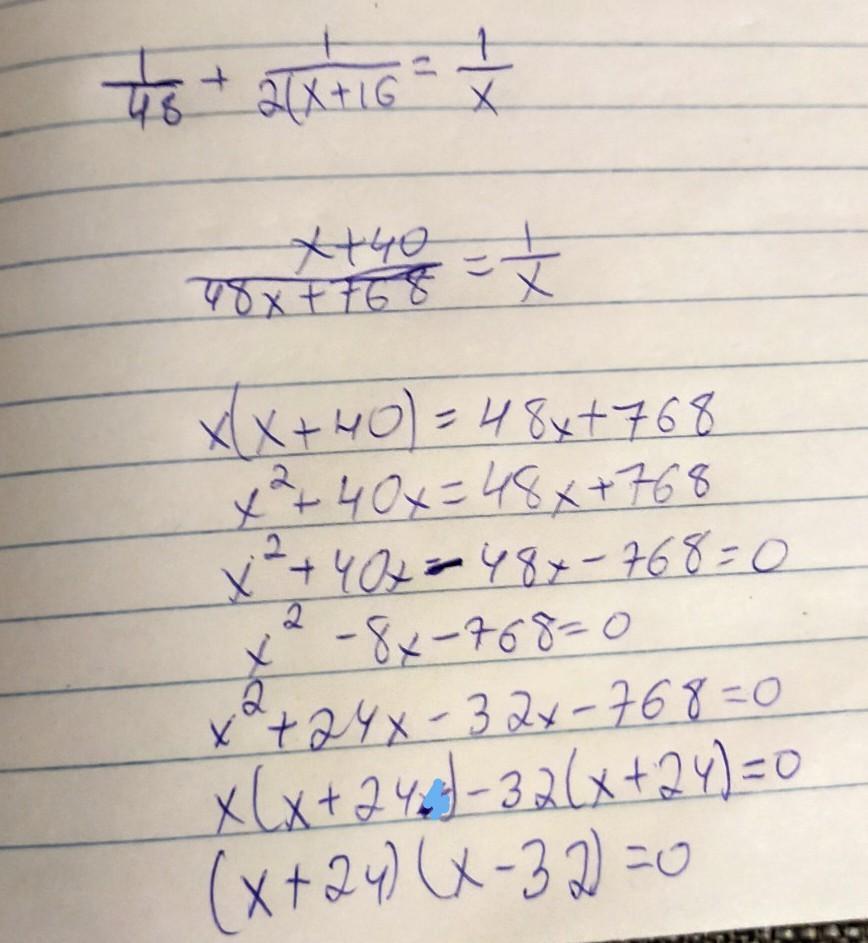 1/48 + 1/2(x+16 = 1/x
x+40/48x+768 = 1/x
x(x+40) = 48x+768
x²+40x=48x+768
x²+40x-48x-768=0
x²-8x-768=0
x²+24x-32x-768=0
x(x+24)-32(x+24)=0
(x+24)(x-32)=0